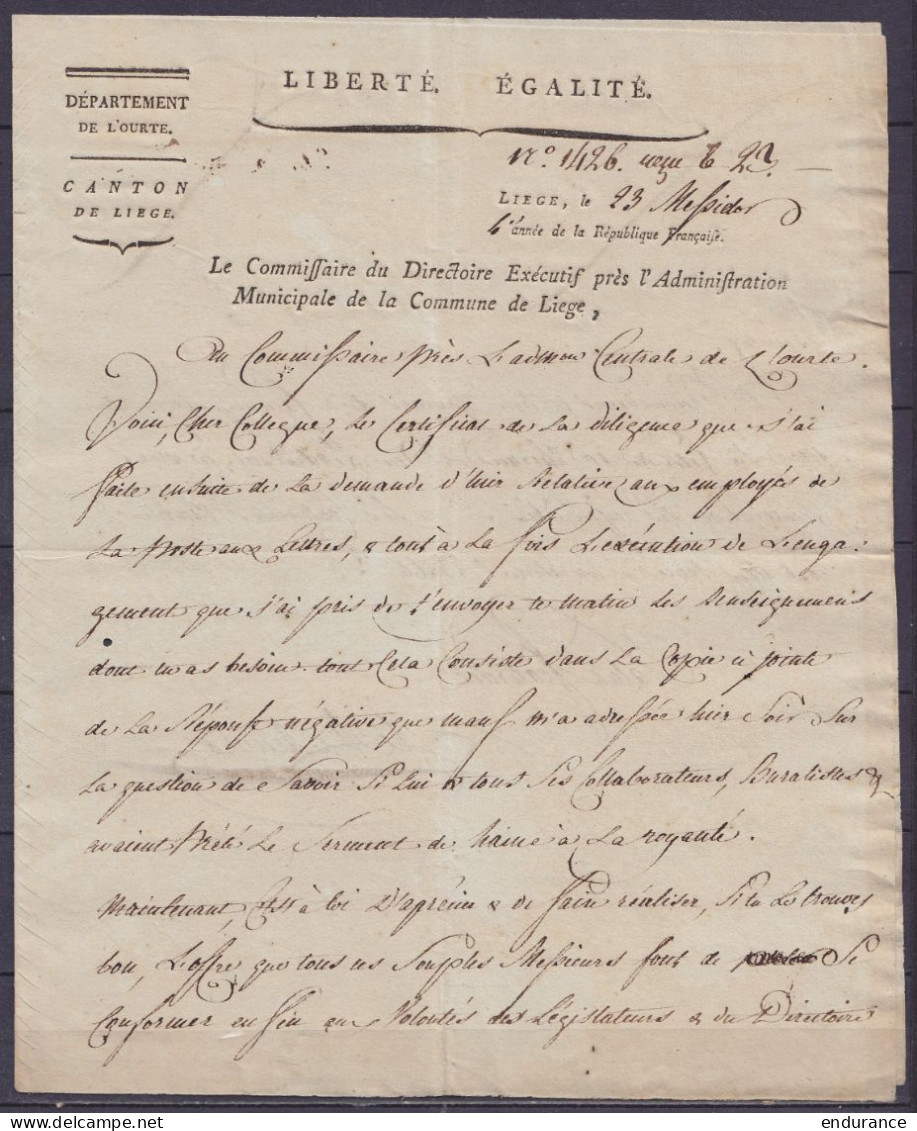 LIBERTÉ. ÉGALITÉ.
DÉPARTEMENT
DE L'OURTE.
CANTON
DE LIEGE.
N.º 1426. reçu le 23.
LIEGE, le 23 Messidor
4e année de la République Française.
Le Commissaire du Directoire Exécutif près l'Administration
Municipale de la Commune de Liege,
Au Commissaire près L'admon Centrale de L'ourte.
Voici, Cher Collegue, Le Certificat de La diligence que j'ai
faite ensuite de La demande d'hier Relative aux employés de
La Poste aux Lettres, & tout à La fois L'exécution de L'enga-
gement que j'ai pris de t'envoyer ce matin Les Renseignemens
dont tu as besoin. tout Cela Consiste dans La Copie ci jointe
de La Réponse négative que m'a adressée hier Soir Sur
La question de Savoir Si Lui & tous Ses Collaborateurs, Buralistes &
avaient Prêté Le Serment de haine à La royauté.
Maintenant, C'est à toi D'aprécier & de faire réaliser, Si tu Le trouves
bon, L'offre que tous ces Souples Messieurs font de Se
Conformer enfin aux Volontés des Législateurs & du Directoire
endurance